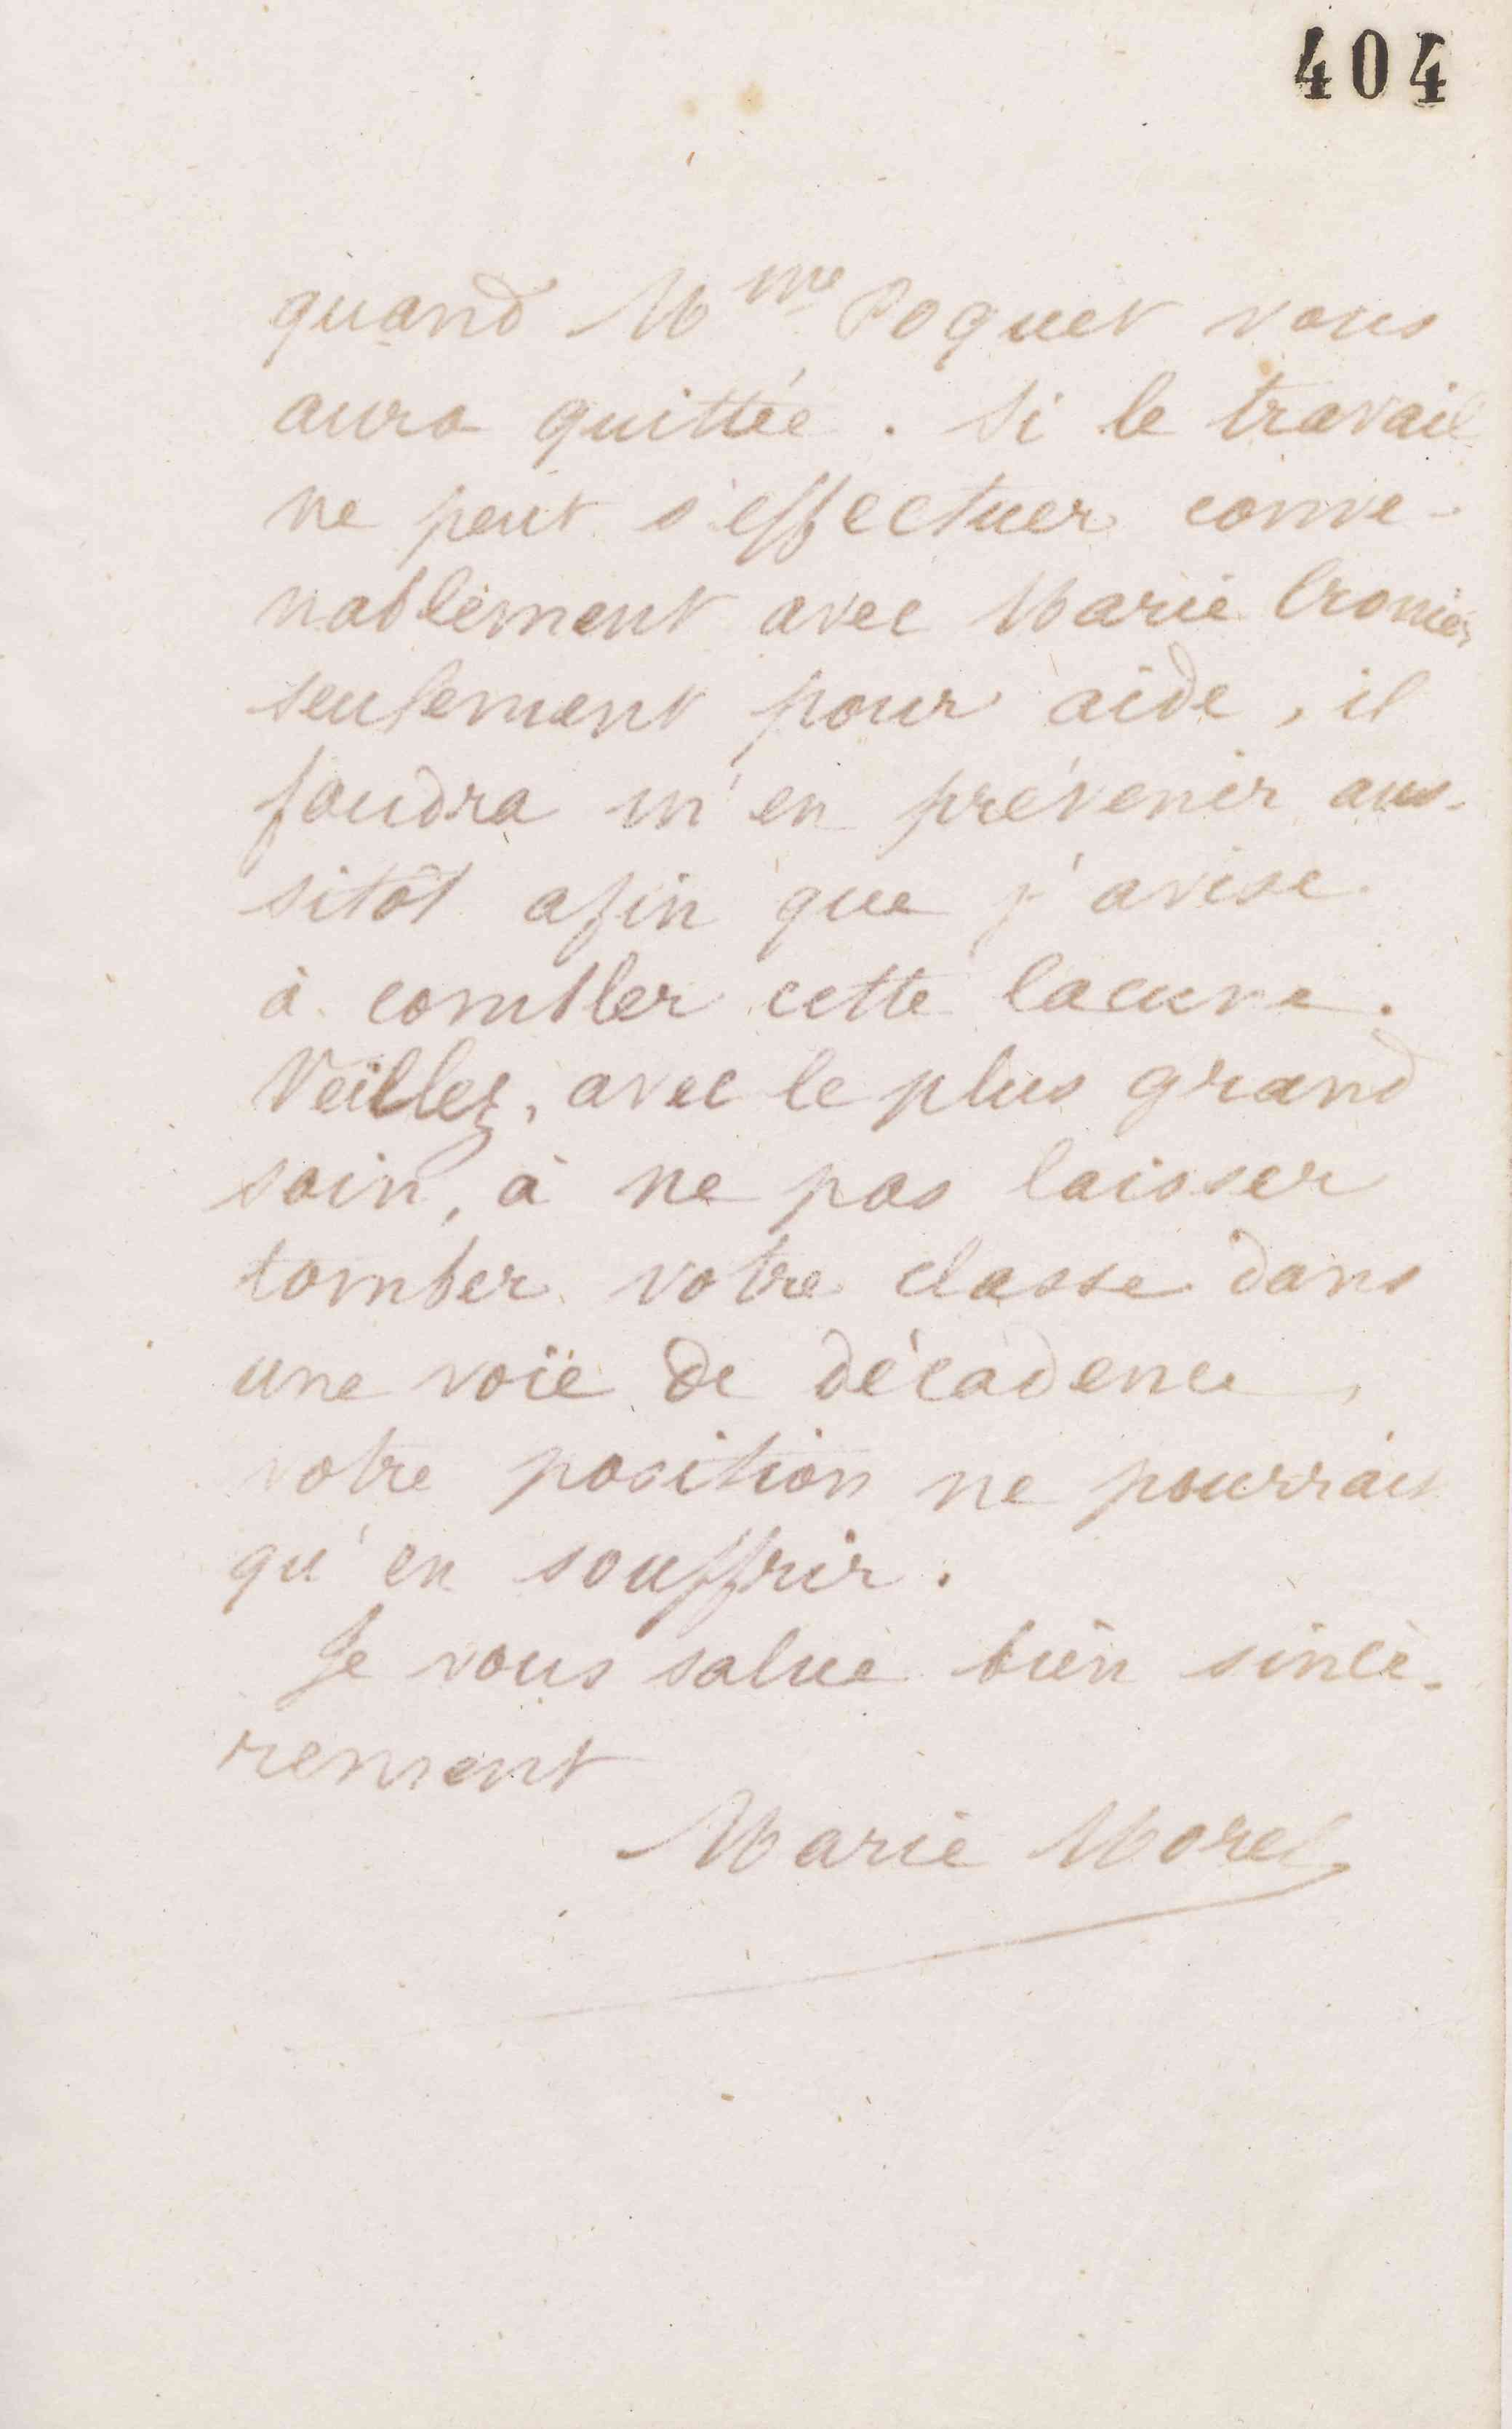 404
quand M^me Poquet vous
aura quittée. Si le travail
ne peut s'effectuer conve-
nablement avec Marie
seulement pour aide, il
faudra m'en prévenir aus-
sitôt afin que j'avise
à combler cette lacune.
Veillez, avec le plus grand
soin, à ne pas laisser
tomber votre classe dans
une voie de décadence,
votre position ne pourrait
qu'en souffrir.
Je vous salue bien sincè-
rement
Marie Moret